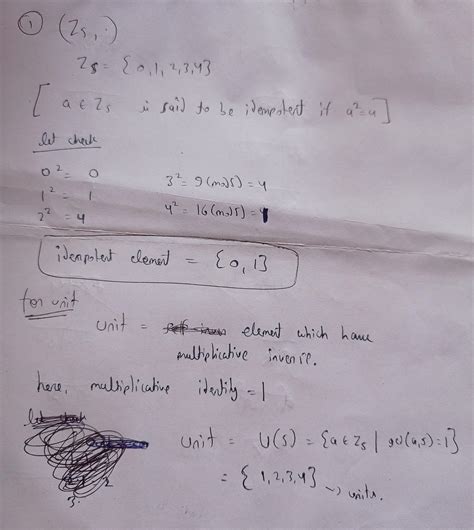 ① (Z₅, ·)
Z₅ = {0,1,2,3,4}
[ a ∈ Z₅ is said to be idempotent if a² = a ]
let check
0² = 0 3² = 9(mod5) = 4
1² = 1 4² = 16(mod5) = 1
2² = 4
idempotent element = {0,1}
for unit
unit = element which have
multiplicative inverse.
here, multiplicative identity = 1
let check
unit = U(5) = {a ∈ Z₅ | gcd(a,5) = 1}
= {1,2,3,4} → units.